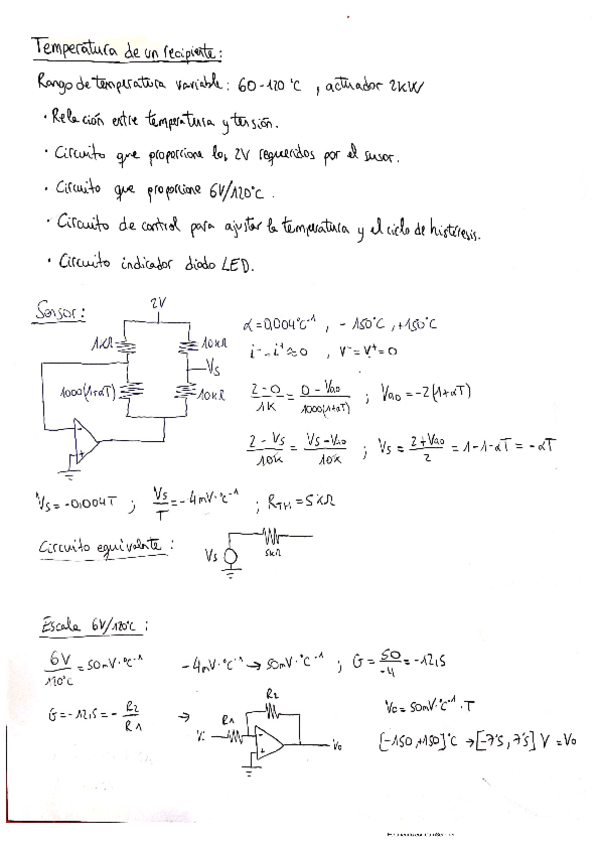 Temperatura de un recipiente:
Rango de temperatura variable: 60-120 °C , actuador 2kW
· Relación entre temperatura y tensión.
· Circuito que proporcione los 2V requeridos por el sensor.
· Circuito que proporcione 6V/120°C.
· Circuito de control para ajustar la temperatura y el ciclo de histéresis.
· Circuito indicador diodo LED.
Sensor:
2V
1kΩ
10kΩ
Vs
1000(1+αT)
10kΩ
-
+
α=0,004°C⁻¹ , -150°C, +150°C
i⁻=i⁺≈0 , V⁻=V⁺=0
2-0/1K = 0-Vao/1000(1+αT) ; Vao=-2(1+αT)
2-Vs/10K = Vs-Vao/10K ; Vs = 2+Vao/2 = 1-1-αT = -αT
Vs=-0,004T ; Vs/T=-4mV·°C⁻¹ ; RTH=5kΩ
Circuito equivalente:
Vs
5kΩ
Escala 6V/120°C:
6V/120°C = 50mV·°C⁻¹
-4mV·°C⁻¹ → 50mV·°C⁻¹ ; G= 50/-4 = -12,5
G=-12,5=- R2/R1 →
R2
R1
V
-
+
Vo
Vo=50mV·°C⁻¹·T
[-150,+150]°C → [-7'5, 7'5] V = Vo